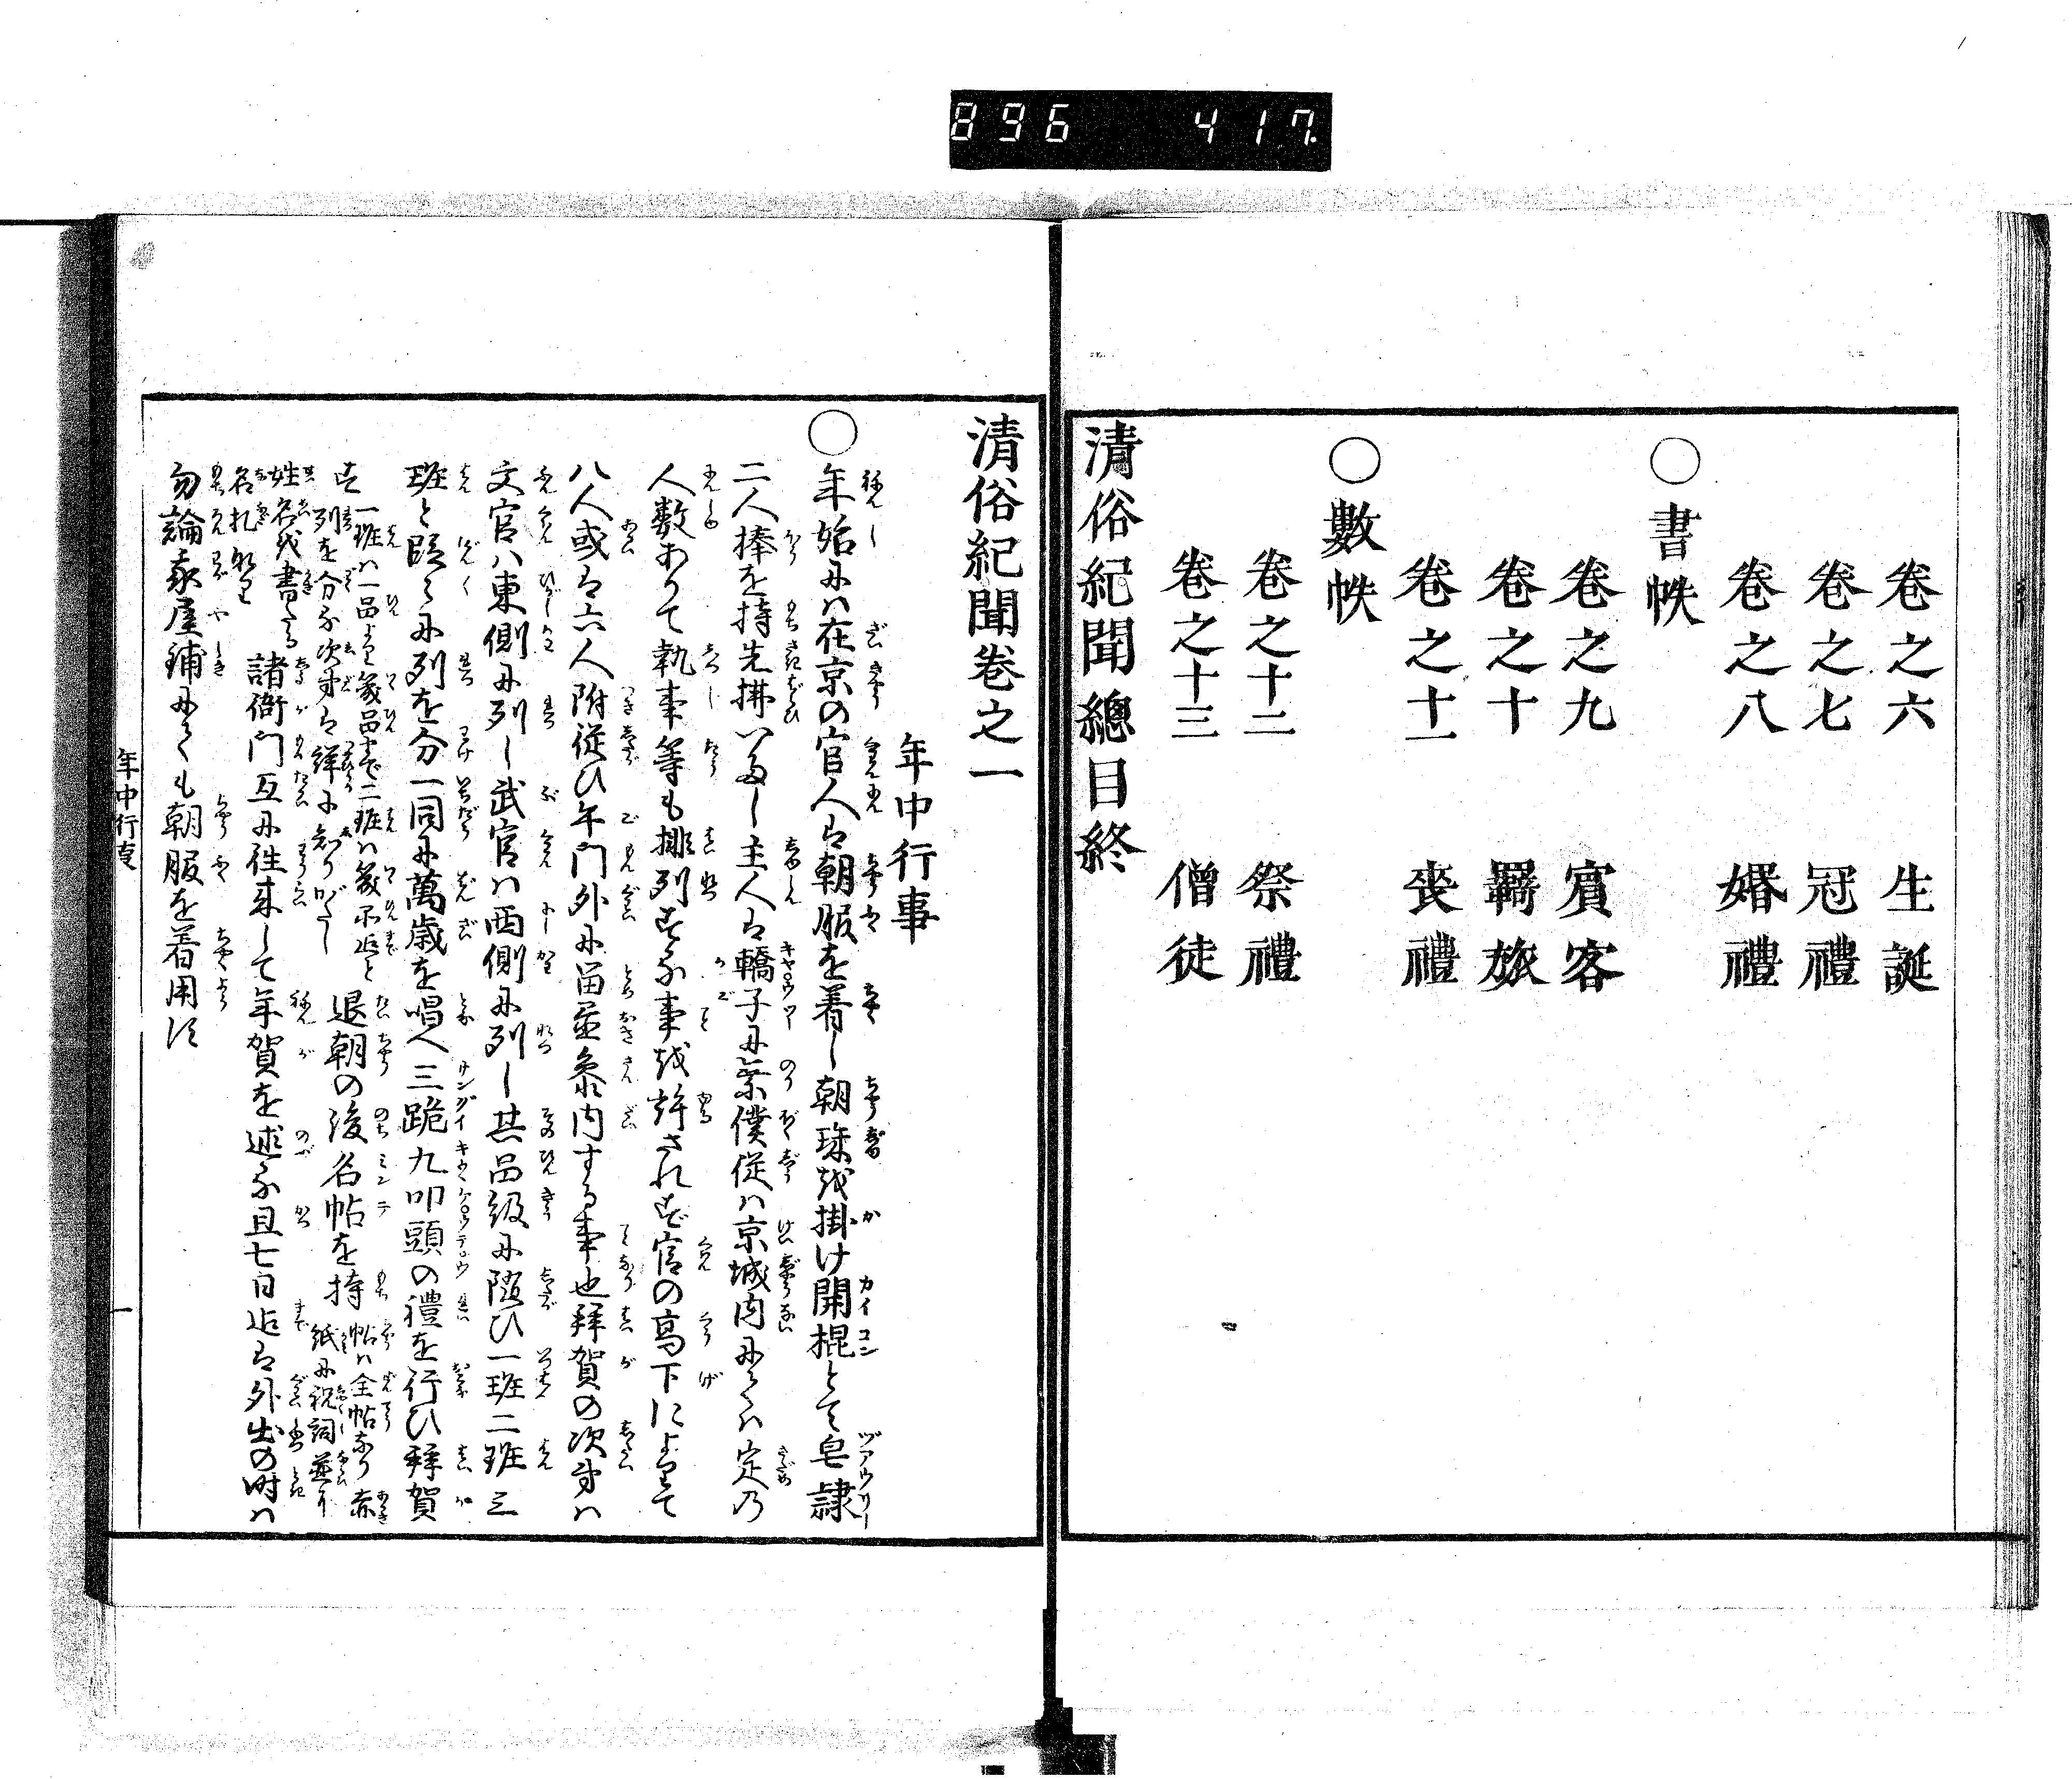 896 417
卷之六 生誕
卷之七 冠禮
卷之八 婚禮
○書帙
卷之九 賓客
卷之十 羈旅
卷之十一 喪禮
○數帙
卷之十二 祭禮
卷之十三 僧徒
清俗紀聞總目終
清俗紀聞卷之一
年中行事
○年始にハ在京の官人は朝服を着し朝珠を掛け開棍とて皂隷
二人捧を持先拂いたし主人は轎子に乘僕從ハ京城内にてハ定乃
人數ありて執事等も排列する事を許されず官の高下によりて
八人或は六人附從ひ午門外に留並參内する事也拜賀の次第ハ
文官ハ東側に列し武官ハ西側に列し其品級に隨ひ一班二班三
班と段々に列を分一同に萬歲を唱へ三跪九叩頭の禮を行ひ拜賀
す
一班ハ一品より幾品まで二班ハ幾品迄と
列を分る次第は詳に知りがたし
退朝の後名帖を持
帖ハ全帖なり赤
紙に祝詞並に
姓名を書たる
名札なり
諸衙門互に徃來して年賀を述る且七日迄は外出の時ハ
勿論家屋鋪にても朝服を着用す
年中行事
一